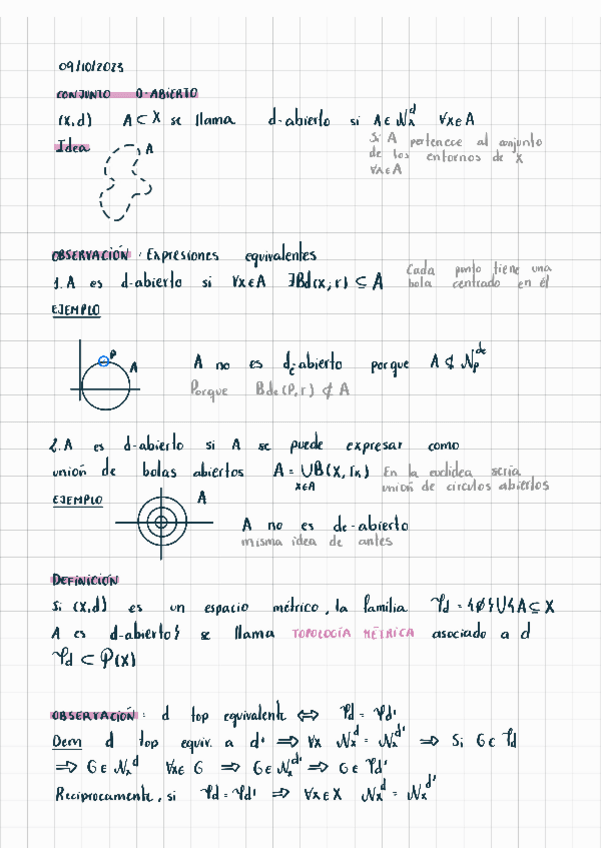 09/10/2023
CONJUNTO D-ABIERTO
(X,d) A ⊂ X se llama d-abierto si A ∈ N_x^d ∀x∈A
Si A pertenece al conjunto
de los entornos de x
∀x∈A
Idea
A
OBSERVACIÓN: Expresiones equivalentes
1. A es d-abierto si ∀x∈A ∃Bd(x,r) ⊆ A
Cada punto tiene una
bola centrado en él
EJEMPLO
P
A
A no es de-abierto porque A ∉ N_p^de
Porque Bde(P,r) ⊄ A
2. A es d-abierto si A se puede expresar como
unión de bolas abiertos A = ∪B(x,rx)
x∈A
En la euclidea seria
unión de circulos abiertos
EJEMPLO
A
A no es de-abierto
misma idea de antes
DEFINICIÓN
Si (X,d) es un espacio métrico, la familia 𝒯d = {∅}∪{A⊆X
A es d-abierto} se llama TOPOLOGÍA MÉTRICA asociado a d
𝒯d ⊂ P(X)
OBSERVACIÓN: d top equivalente ⟺ 𝒯d = 𝒯d'
Dem d top equiv. a d' ⟹ ∀x N_x^d = N_x^d' ⟹ Si G∈𝒯d
⟹ G∈N_x^d ∀x∈G ⟹ G∈N_x^d' ⟹ G∈𝒯d'
Reciprocamente, si 𝒯d = 𝒯d' ⟹ ∀x∈X N_x^d = N_x^d'